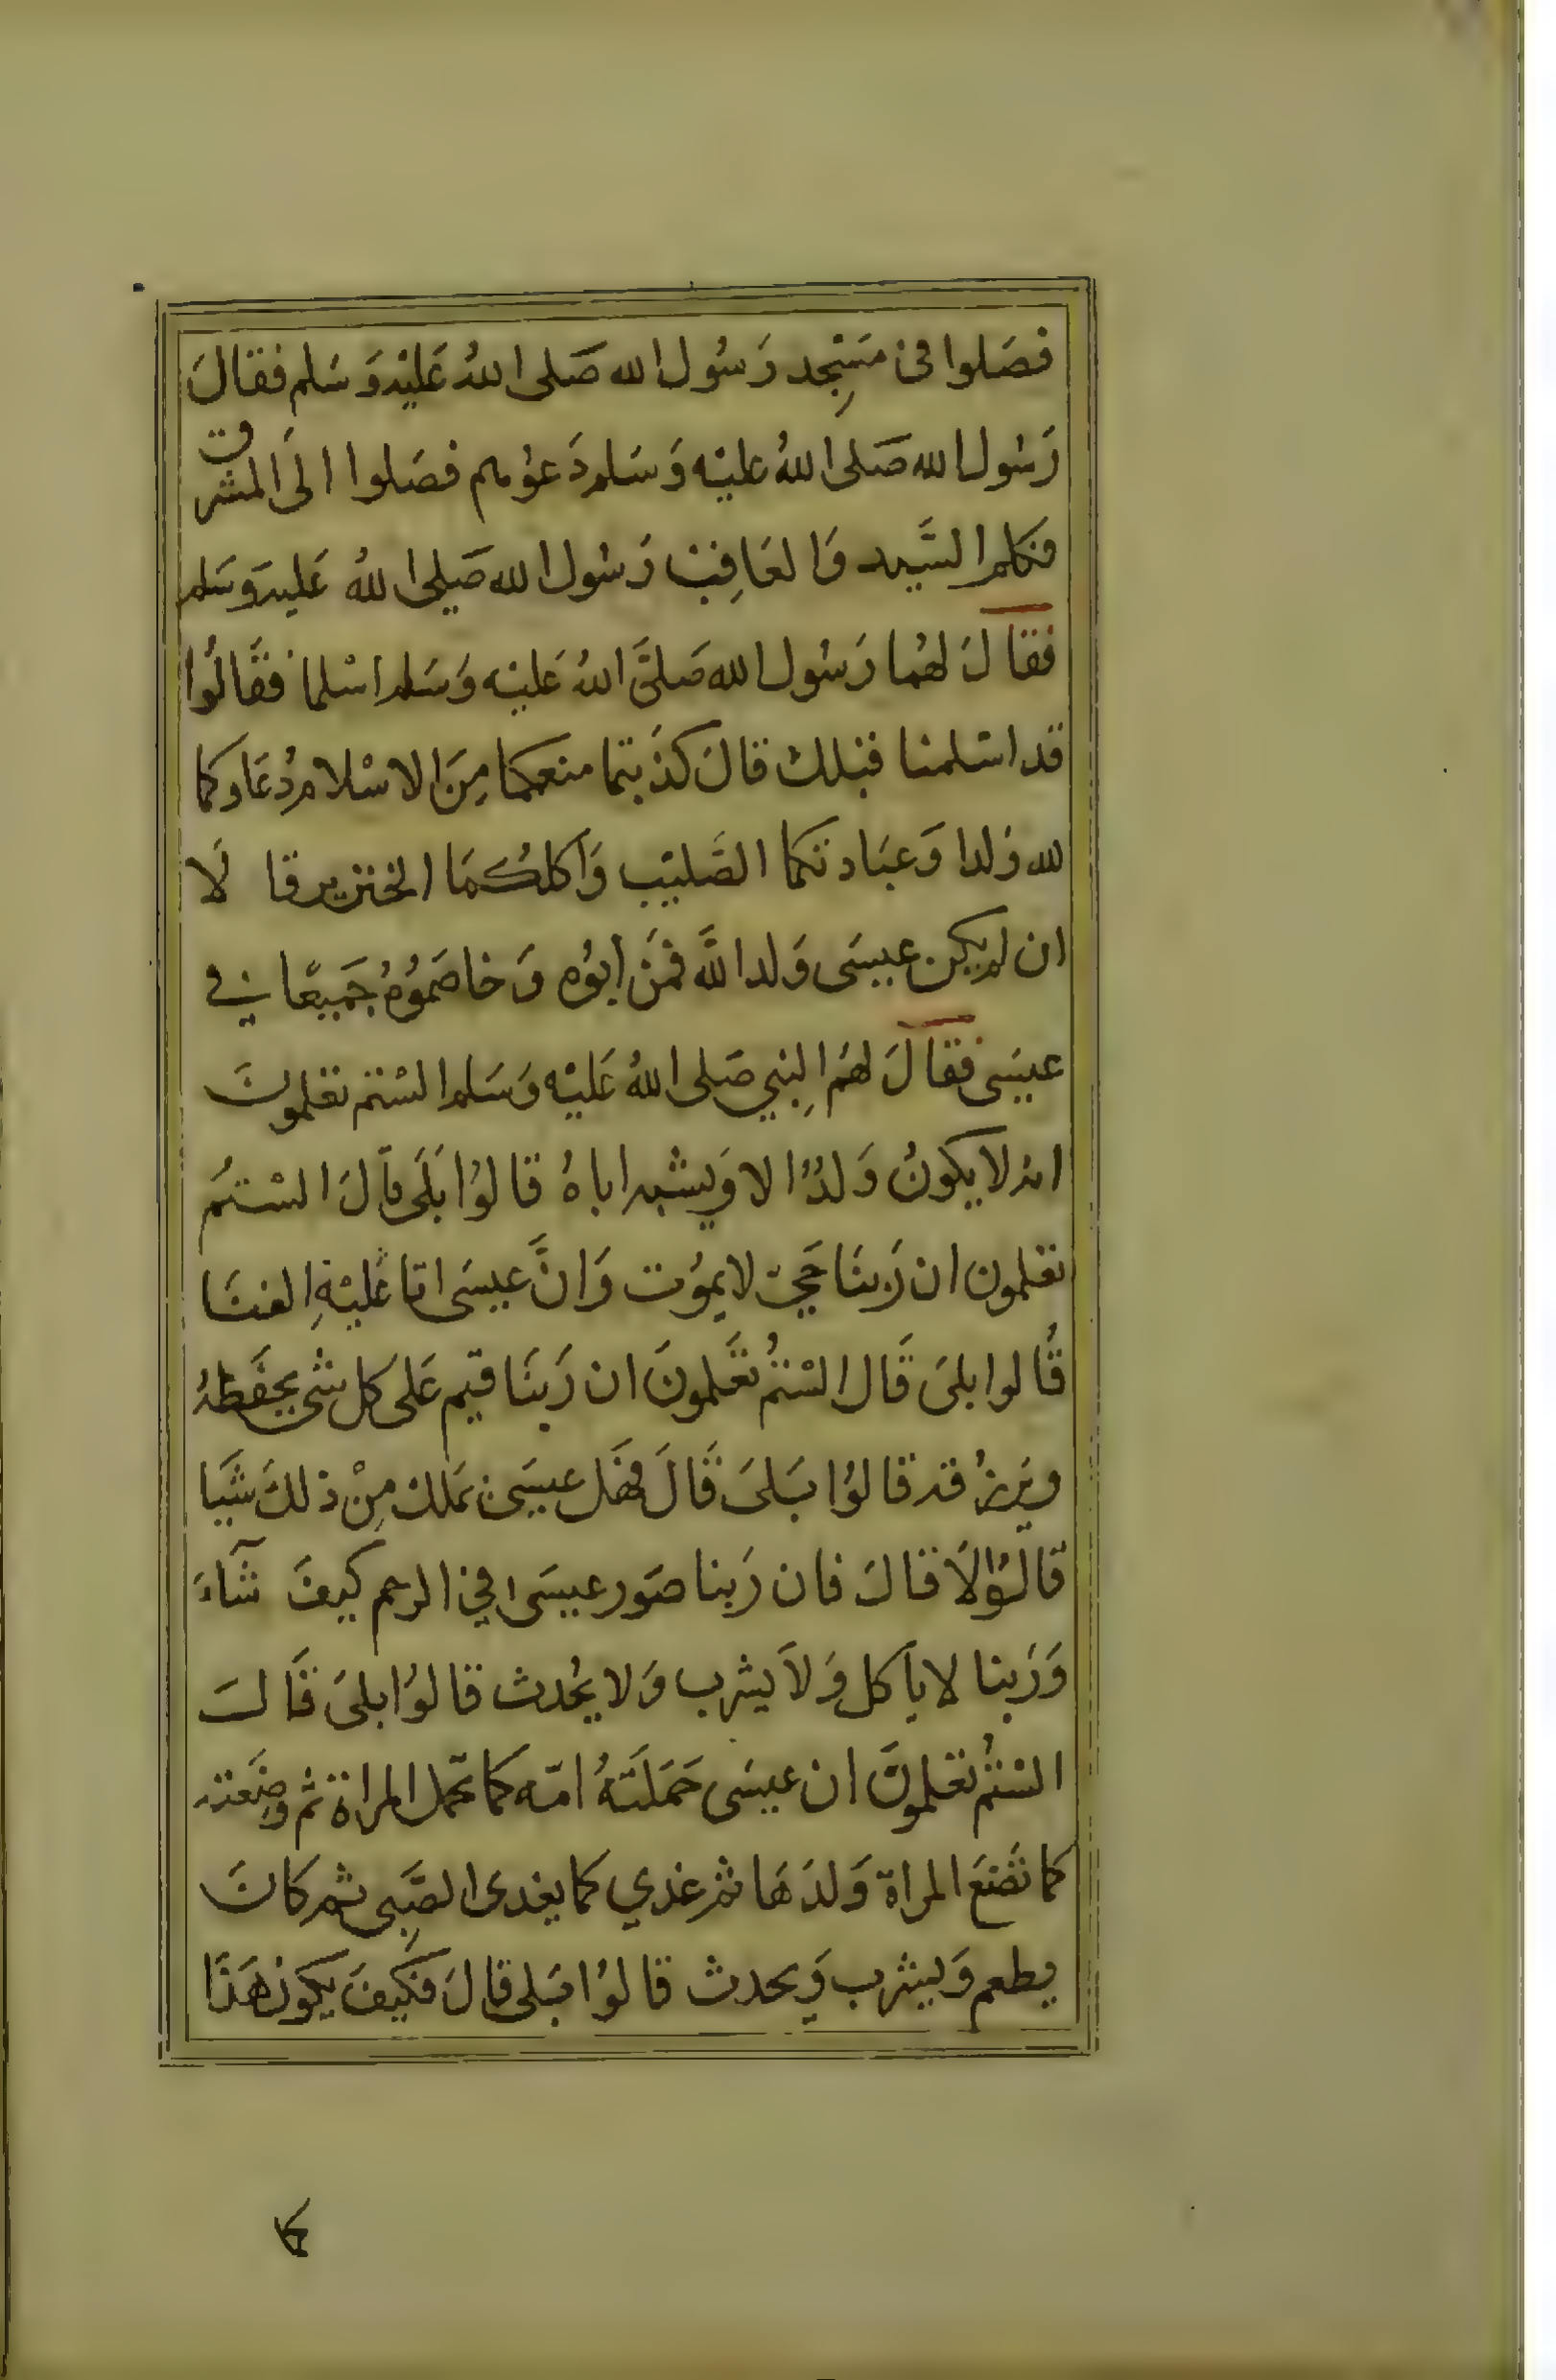 فصَلوا فى مسَنِجد رَسُول الله صَلى اللهُ عَليْه وَسَلم فقالَ
رَسُول الله صَلى اللهُ عليْه وَسَلم دَعوُهم فصَلوا الَى المشرق
فكلم السَّيد وَالعَاقِب رَسُول الله صَلى اللهُ عَليه وسَلم
فقالَ لهُما رَسُول الله صَلىَّ اللهُ عَليْه وَسَلم اسْلما فقَالُوا
قد اسْلمنا قبْلك قالَ كذَبتما منعكما مِنَ الاسْلام دُعَاوكما
لله وَلدا وَعبَادتكما الصَّليْب وَاكلكُمَا الخنزير قالَا
ان لم يكن عيسَى وَلد اللَّه فمَن ابوُه وَخاصَموُهُ جَميعًا في
عيسَى فقالَ لهَم النِبي صَلى اللهُ عَليْه وَسَلم الستم تعلموُنَ
انه لا يكونُ وَلدٌ الا وَيشبه اباهُ قالوُا بَلَى قالَ الستمُ
تعلمون ان رَبنَا حَيّ لا يموُت وَانَّ عيسَى اتا عَليْهِ الفنَا
قَالوا بلىَ قَال الستمُ تعَلمونَ ان رَبنَا قيم عَلى كل شى يحفَظهُ
ويَرزُقه قالوُا بَلىَ قَالَ فهَل عيسَى يَملك مِنْ ذلكَ شَيَا
قالوُا لَا قالَ فان رَبنا صَور عيسَى في الرحم كيفَ شآءَ
وَرَبنا لا يأكل وَلاَ يشرب وَلا يحُدث قالوُا بلىَ قَالَ
الستمُ تعَلموُنَ ان عيسَى حَمَلَتهُ امّه كما تحمل المراة ثم وضَعته
كما تَضَعَ المراة وَلدَهَا ثم غذي كما يغدى الصَّبِى ثم كَانَ
يطعم وَيشرب وَيحدث قالوُا بَلى قالَ فكيفَ يكون هَذَا
كما